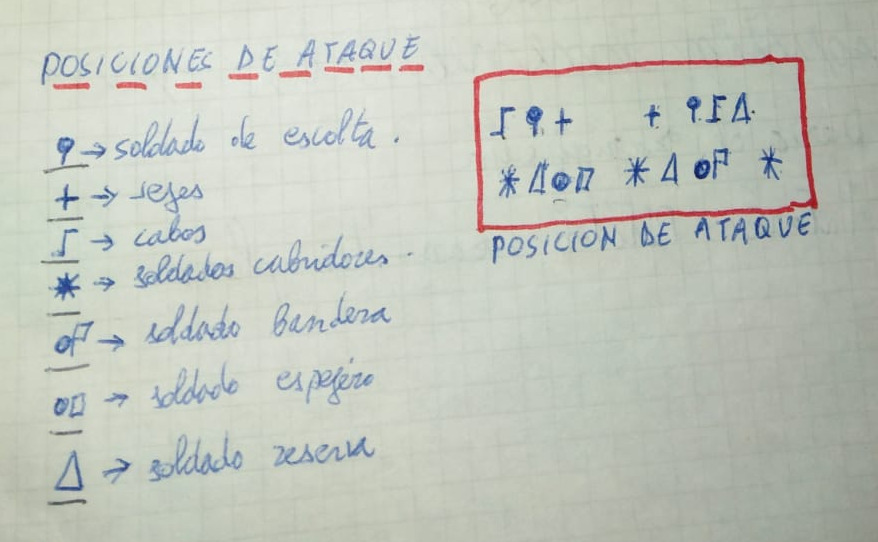 POSICIONES DE ATAQUE
→ soldado de escolta.
+ → jefes
→ cabos
* → soldados cubridores.
→ soldado bandera
→ soldado espejéro
Δ → soldado reserva
POSICION DE ATAQUE